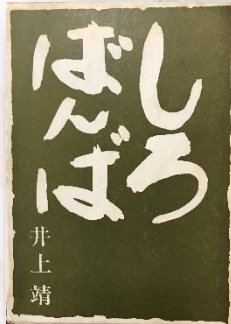 しろ
ばんば
井上靖